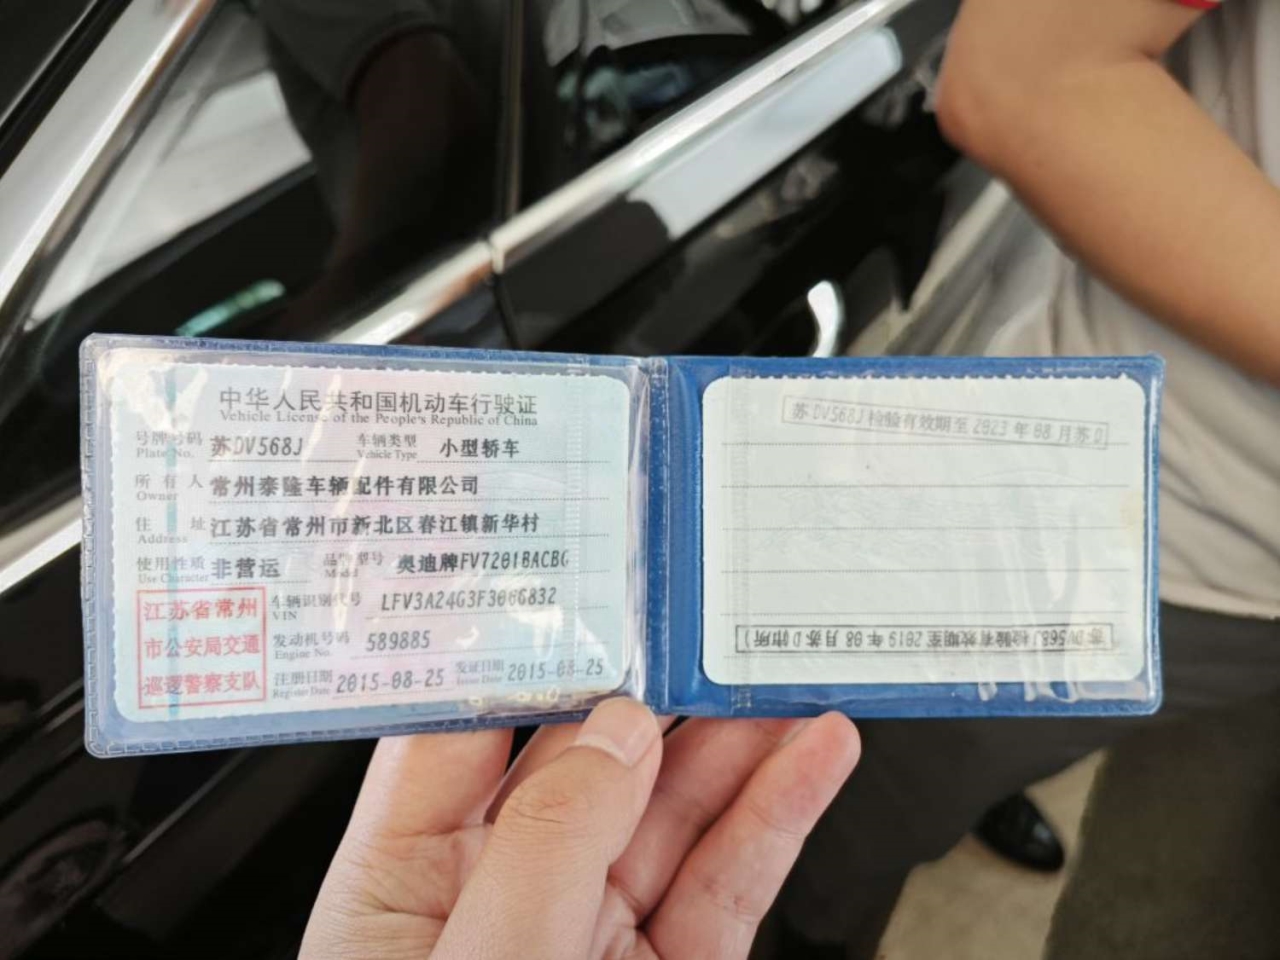 中华人民共和国机动车行驶证
Vehicle License of the People's Republic of China
号牌号码 苏DV568J 车辆类型 小型轿车
Plate No. Vehicle Type
所有人 常州泰隆车辆配件有限公司
Owner
住址 江苏省常州市新北区春江镇新华村
Address
使用性质 非营运 品牌型号 奥迪牌FV7201BACBG
Use Character Model
江苏省常州
市公安局交通
巡逻警察支队
车辆识别代号
VIN
发动机号码 589885
Engine No.
注册日期 2015-08-25 发证日期 2015-08-25
Register Date Issue Date
苏DV568J 检验有效期至 2023 年 08 月苏D
苏DV568J 检验有效期至 2019 年 08 月苏D(市所)